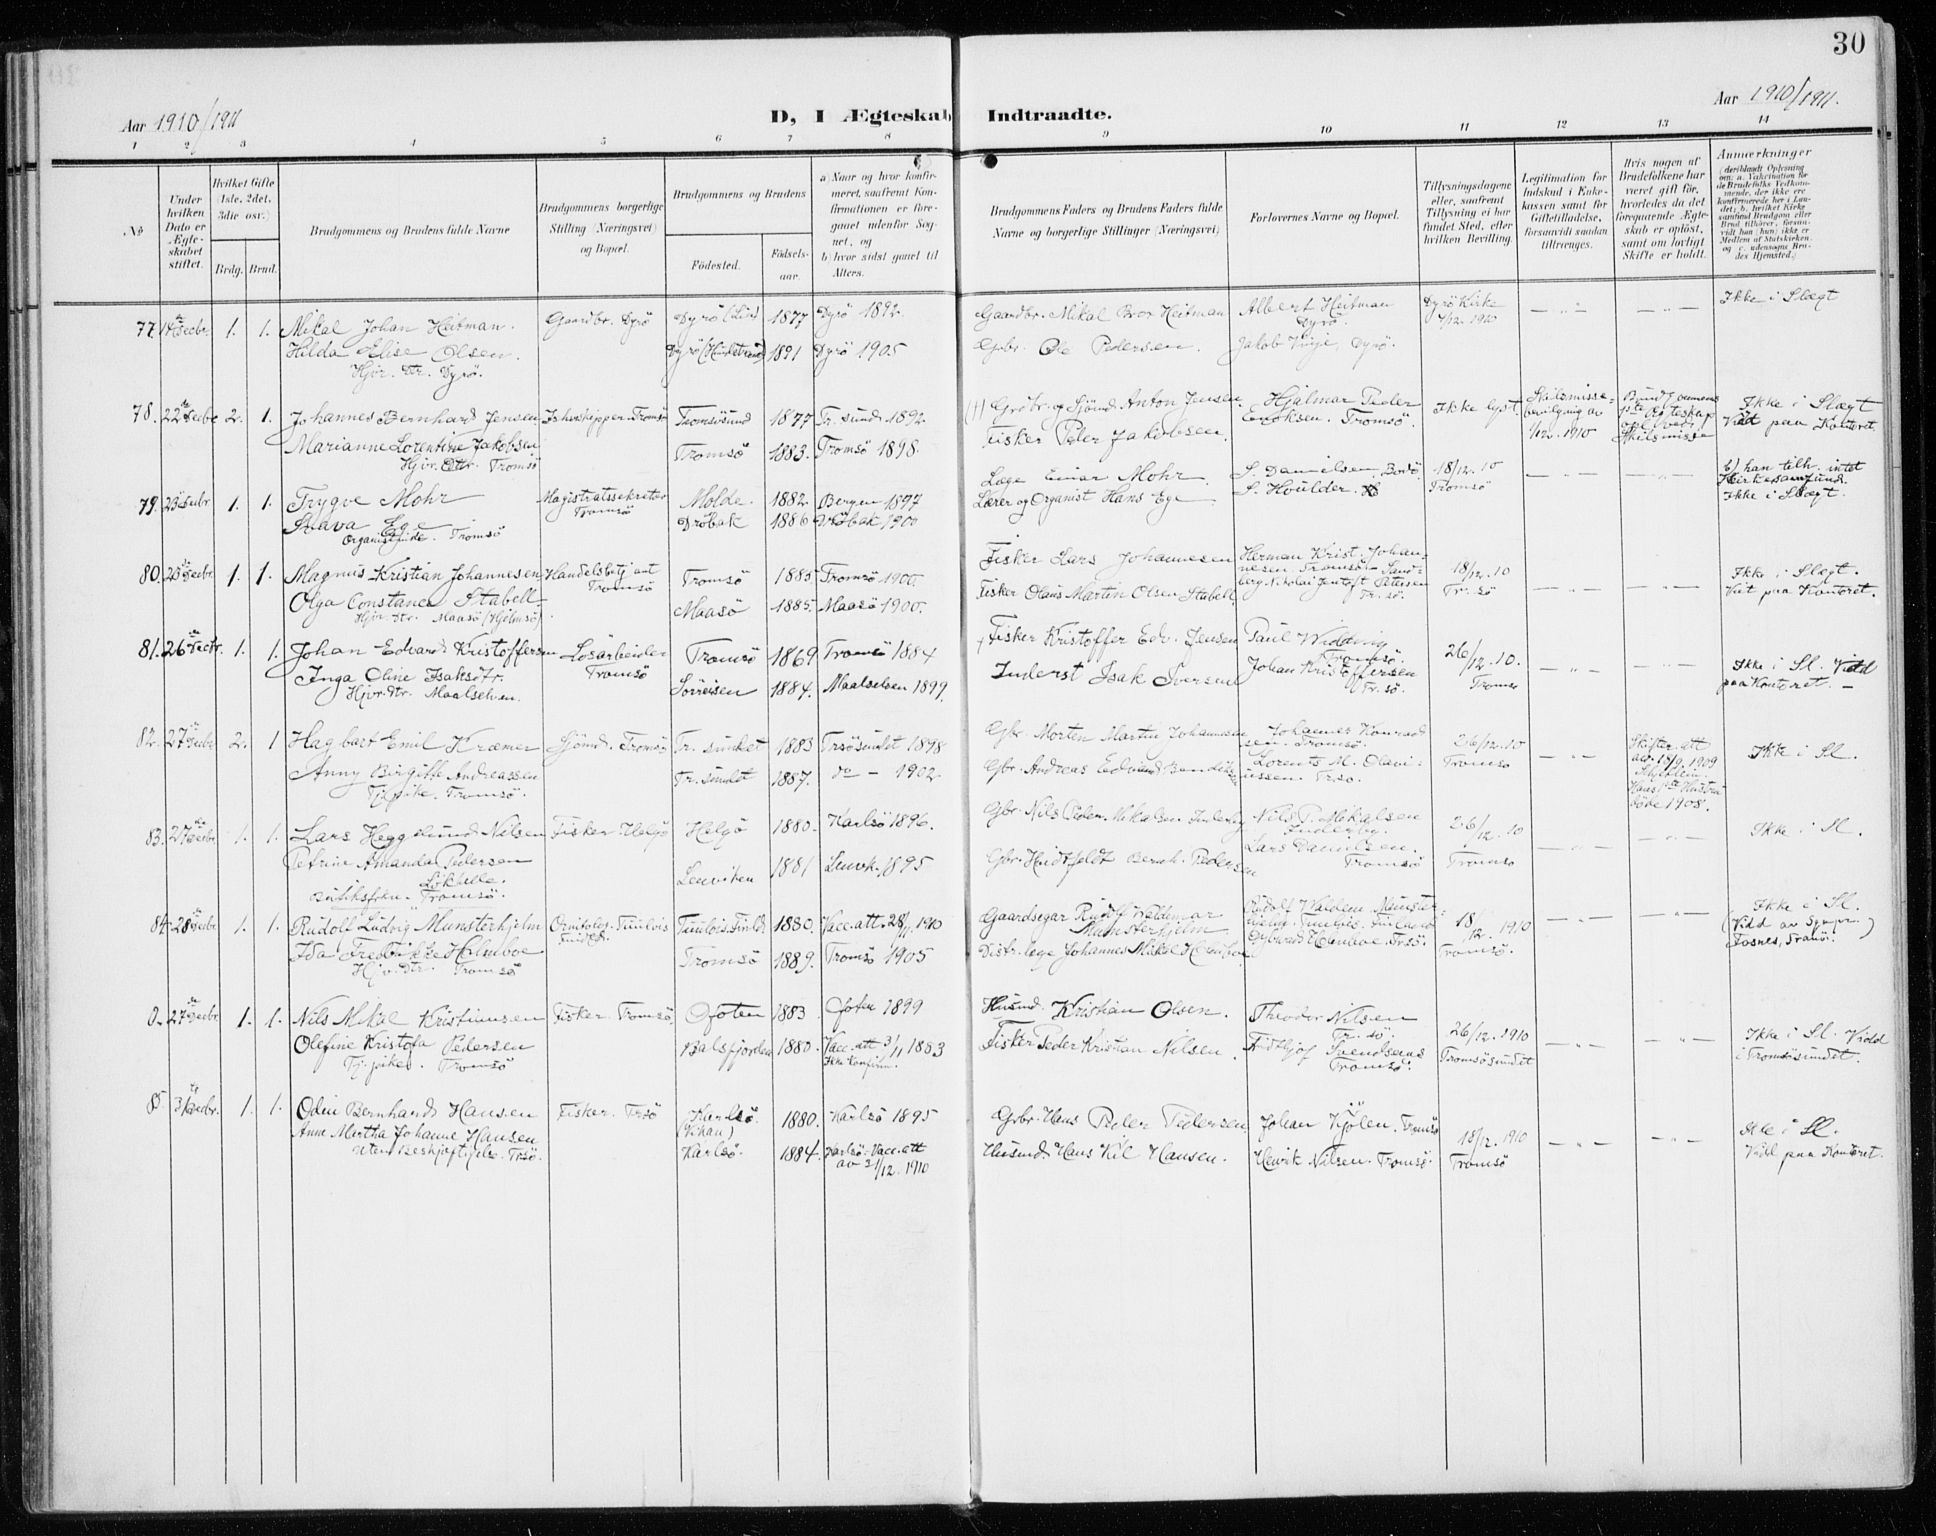 30
Aar 1910/1911
D, I Ægteskab Indtraadte.
Aar 1910/1911.
1 2 3 4 5 6 7 8 9 10 11 12 13 14
No
Under hvilken Dato er Ægteskabet stiftet.
Hvilket Gifte (1ste, 2det, 3die osv.)
Brdg. Brud.
Brudgommens og Brudens fulde Navne
Brudgommens borgerlige Stilling (Næringsvei) og Bopæl.
Brudgommens og Brudens
Födested.
Födselsaar.
a) Naar og hvor konfirmeret, saafremt Konfirmationen er foregaaet udenfor Sognet, og
b) hvor sidst gaaet til Alters.
Brudgommens Faders og Brudens Faders fulde Navne og borgerlige Stillinger (Næringsvei)
Forlovernes Navne og Bopæl.
Tillysningsdagene eller, saafremt Tillysning ei har fundet Sted, efter hvilken Bevilling.
Legitimation for Indskud i Enkekassen samt for Giftetilladelse, forsaavidt saadan tiltrænges.
Hvis nogen af Brudefolkene har været gift för, hvorledes da det foregaaende Ægteskab er oplöst, samt om lovligt Skifte er holdt.
Anmærkninger
77. 14de Decbr. 1. 1. Mikal Johan Heitman. Gaardbr. Dyrö 1877 Dyrö 1892. Gaardbr. Mikal Bror Heitman Albert Heitman Dyrö. Dyrö Kirke 4/12. 1910 — „ — — „ — Ikke i Slægt
Hilda Elise Olsen. 1891 Dyrö 1905 Gbr. Ole Pedersen. Jakob Vinje, Dyrö.
Hjvr. Dtr. Dyrö.
78. 22de Decbr 2. 1. Johannes Bernhard Jensen Ishavsskipper. Tromsö Tromsösund 1877 Tr. sund. 1892. Anton Jensen. Hjalmar Peder Enoksen. Tromsö. Ikke lyst. Skilsmissebevilgning av 1/12. 1910 Ikke i Slægt
Marianne Lorentine Jakobsen Tromsö 1883. Tromsö 1898. Fisker Peder Jakobsen. Skilsmisse Vidd paa Kontoret.
Hjvr. Dtr. Tromsö
79. 23de Decbr 1. 1. Trygve Mohr Magistratssekretær Tromsö Molde. 1882. Bergen 1897 Læge Einar Mohr. S. Danielsen, Bodö 18/12. 10 Tromsö — „ — — „ — b) han tilh. intet Kirkesamfund.
Ege Dröbak 1886 Dröbak 1900 Lærer og Organist Hans Ege S. Houlder. Ikke i Slægt.
Organistinde. Tromsö
80. 23de Decbr. 1. 1. Magnus Kristian Johannesen Handelsbetjent Tromsö Tromsö 1885 Tromsö 1900. Fisker Lars Johannesen Herman Krist. Johannesen. Tromsö. 18/12. 10 Tr. sö — „ — — „ — Ikke i Slægt.
Olga Constance Stabell. Maasö 1885. Maasö 1900. Fisker Olaus Martin Olsen Stabell. Nikolai Jentoft Pettersen Tr. sö. Vidt paa Kontoret.
Hjvr. Dtr. Maasö (Hjelmsö).
81. 26de Decbr. 1. 1. Johan Edvard Kristoffersen Lösarbeider Tromsö Tromsö 1869 Tromsö 1884 Fisker Kristoffer Edv. Jensen Paul Tromsö. 26/12. 10. Tromsö — „ — — „ — Ikke i Sl. Vidd
Inga Oline Isaksdtr. Sörreisen 1884. Maalselven 1899. Inderst Isak Iversen Johan Kristoffersen Tr. sö. paa Kontoret. —
Hjvr. dtr. Maalselven.
82. 27de Decbr 2. 1 Hagbart Emil Kræmer Sjömd. Tromsö Tr. sundet 1883 Trsösundet 1898 Gbr. Morten Martin Johannesen Johannes Konrad Tromsö. 26/12. 10 Tromsö — „ — Skifteatt av 15/9. 1909 Ikke i Sl.
Anny Birgitte Andreassen Tr. sundet 1887. do — 1902. Gbr. Andreas Edvard Lorents M. Olavi- Tr.sö. Hans 1ste Hustru döde 1908.
Tj. pike. Tromsö.
83. 27de Decbr. 1. 1. Lars Heggelund Nilsen Fisker. Helgö Helgö 1880. Karlsö 1896. Gbr. Nils Peder Mikalsen Nils P. Mikalsen 26/12. 10 Tromsö — „ — Ikke i Sl.
Petrine Amanda Pedersen Lenviken 1881 Lenvk. 1895 Gbr. Hvidtfeldt Bernh. Pedersen Lars Danielsen. Tromsö
Tromsö.
84. 28de Decbr 1. 1. Rudolf Ludvig Munsterhjelm Ornitolog. Tuulois Finland. 1880. Vacc. att. 28/11. 1910 Gaardseier Rudolf Waldemar Munsterhjelm 18/12. 1910 Tromsö. — „ — — „ — Ikke i Sl.
Ida Fredrikke Holmboe Tromsö 1889. Tromsö 1905 Distr. læge Johannes Mikal Holmboe
Hjv. Dtr. Tromsö
0. 27de Decbr. 1. 1. Nils Mikal Kristiansen Fisker. Tromsö Ofoten 1883 Ofoten 1899 Husmd. Kristian Olsen. Theodor Nilsen Tr. sö. 26/12. 1910 Tromsösundet — „ — — „ — Ikke i Sl. Vidd i Tromsösundet.
Olefine Kristofa Pedersen Balsfjorden 1880. Vacc. att 3/11 1883 Ikke konfirm. Fisker Peder Kristian Nilsen. Fridthjof Svendsens Tromsö.
Tj. pike. Tromsö
85. 31te Decbr. 1. 1. Odin Bernhard Hansen Fisker. Trsö Karlsö. 1880. Karlsö 1895 Gbr. Hans Peder Pedersen Johan Kjölen. Tromsö 18/12. 1910 Tromsö — „ — — „ — Ikke i Sl.
Anne Martha Johanne Hansen Karlsö. 1884. Karlsö. Vacc. att av 21/12. 1910 Husmd. Hans Kil Hansen. Henrik Nilsen. Tromsö. Vidd paa Kontoret.
uten Beskjæftigelse. Trsö.